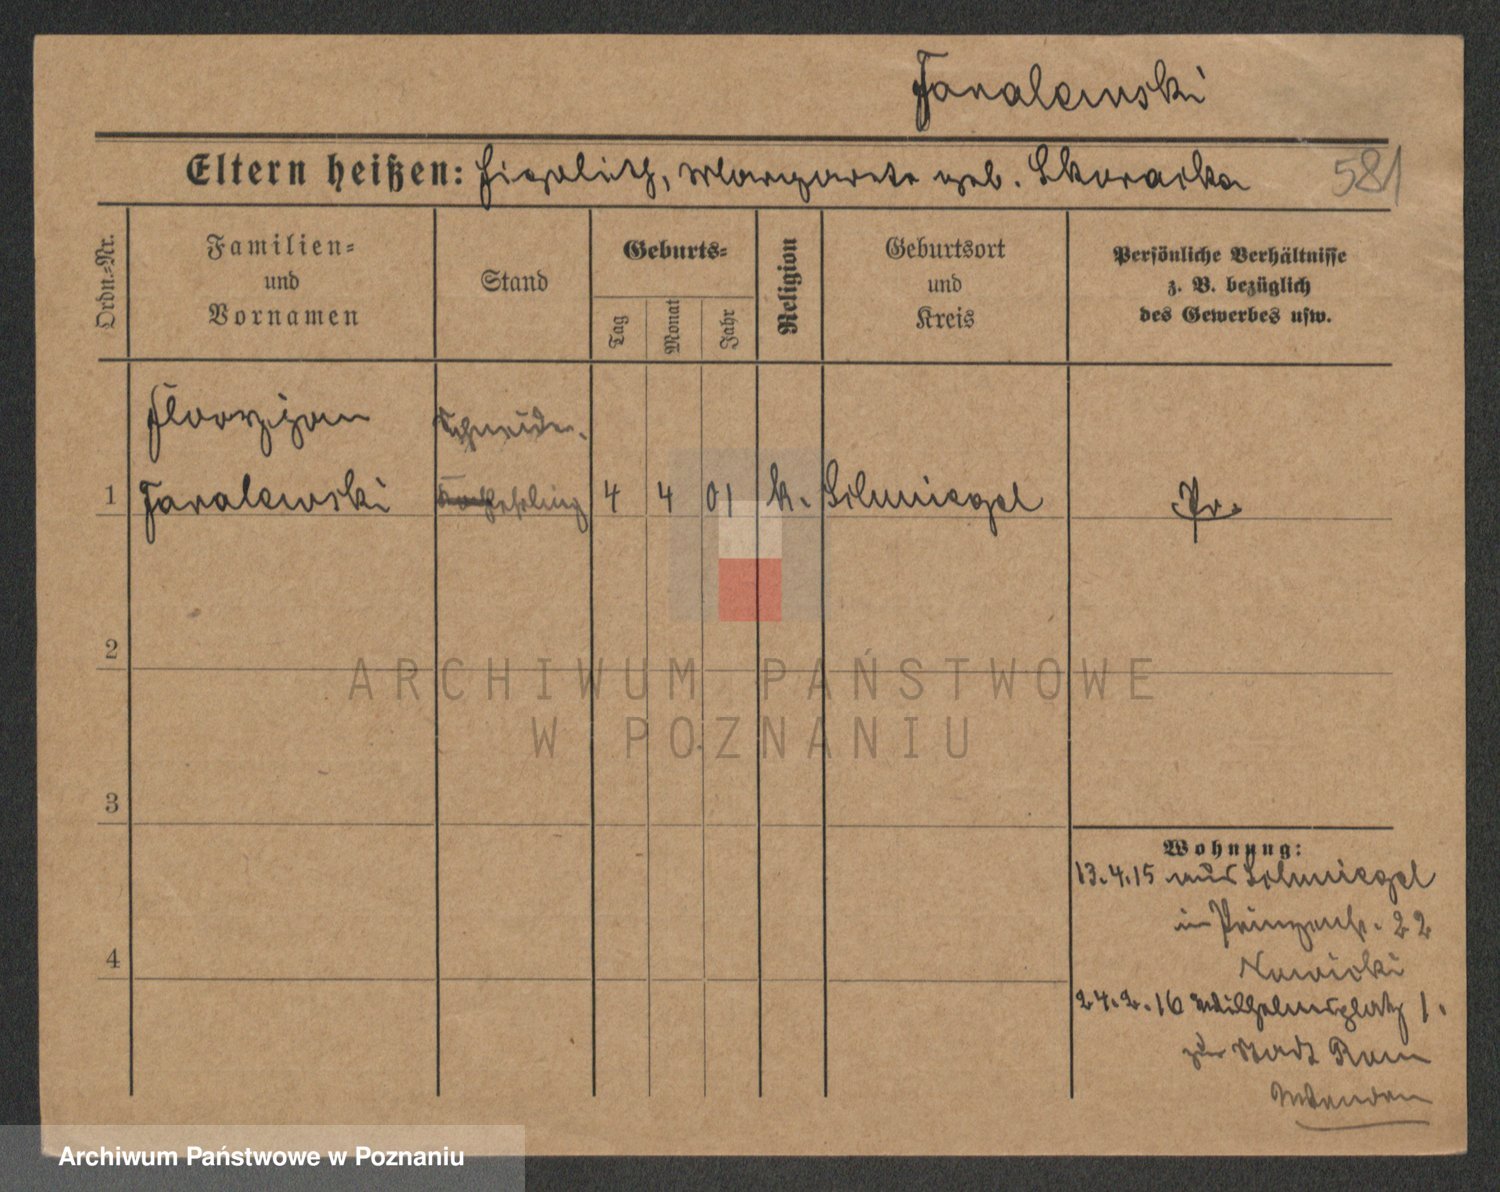 Faralewski
Eltern heißen: Hippolith, Margarete geb. Skoracka
581
Ordn.-Nr.
Familien-
und
Vornamen
Stand
Geburts-
Tag
Monat
Jahr
Religion
Geburtsort
und
Kreis
Persönliche Verhältnisse
z. B. bezüglich
des Gewerbes usw.
Schneider-
1 Faralewski lehrling 4 4 01 k. Schmiegel Pr.
2
3
4
Wohnung:
13.4.15 aus Schmiegel
in Prinzenstr. 22
Nowicki
24.2.16 Wilhelmsplatz 1.
zur Stadt Rom
ARCHIWUM PAŃSTWOWE
W POZNANIU
Archiwum Państwowe w Poznaniu